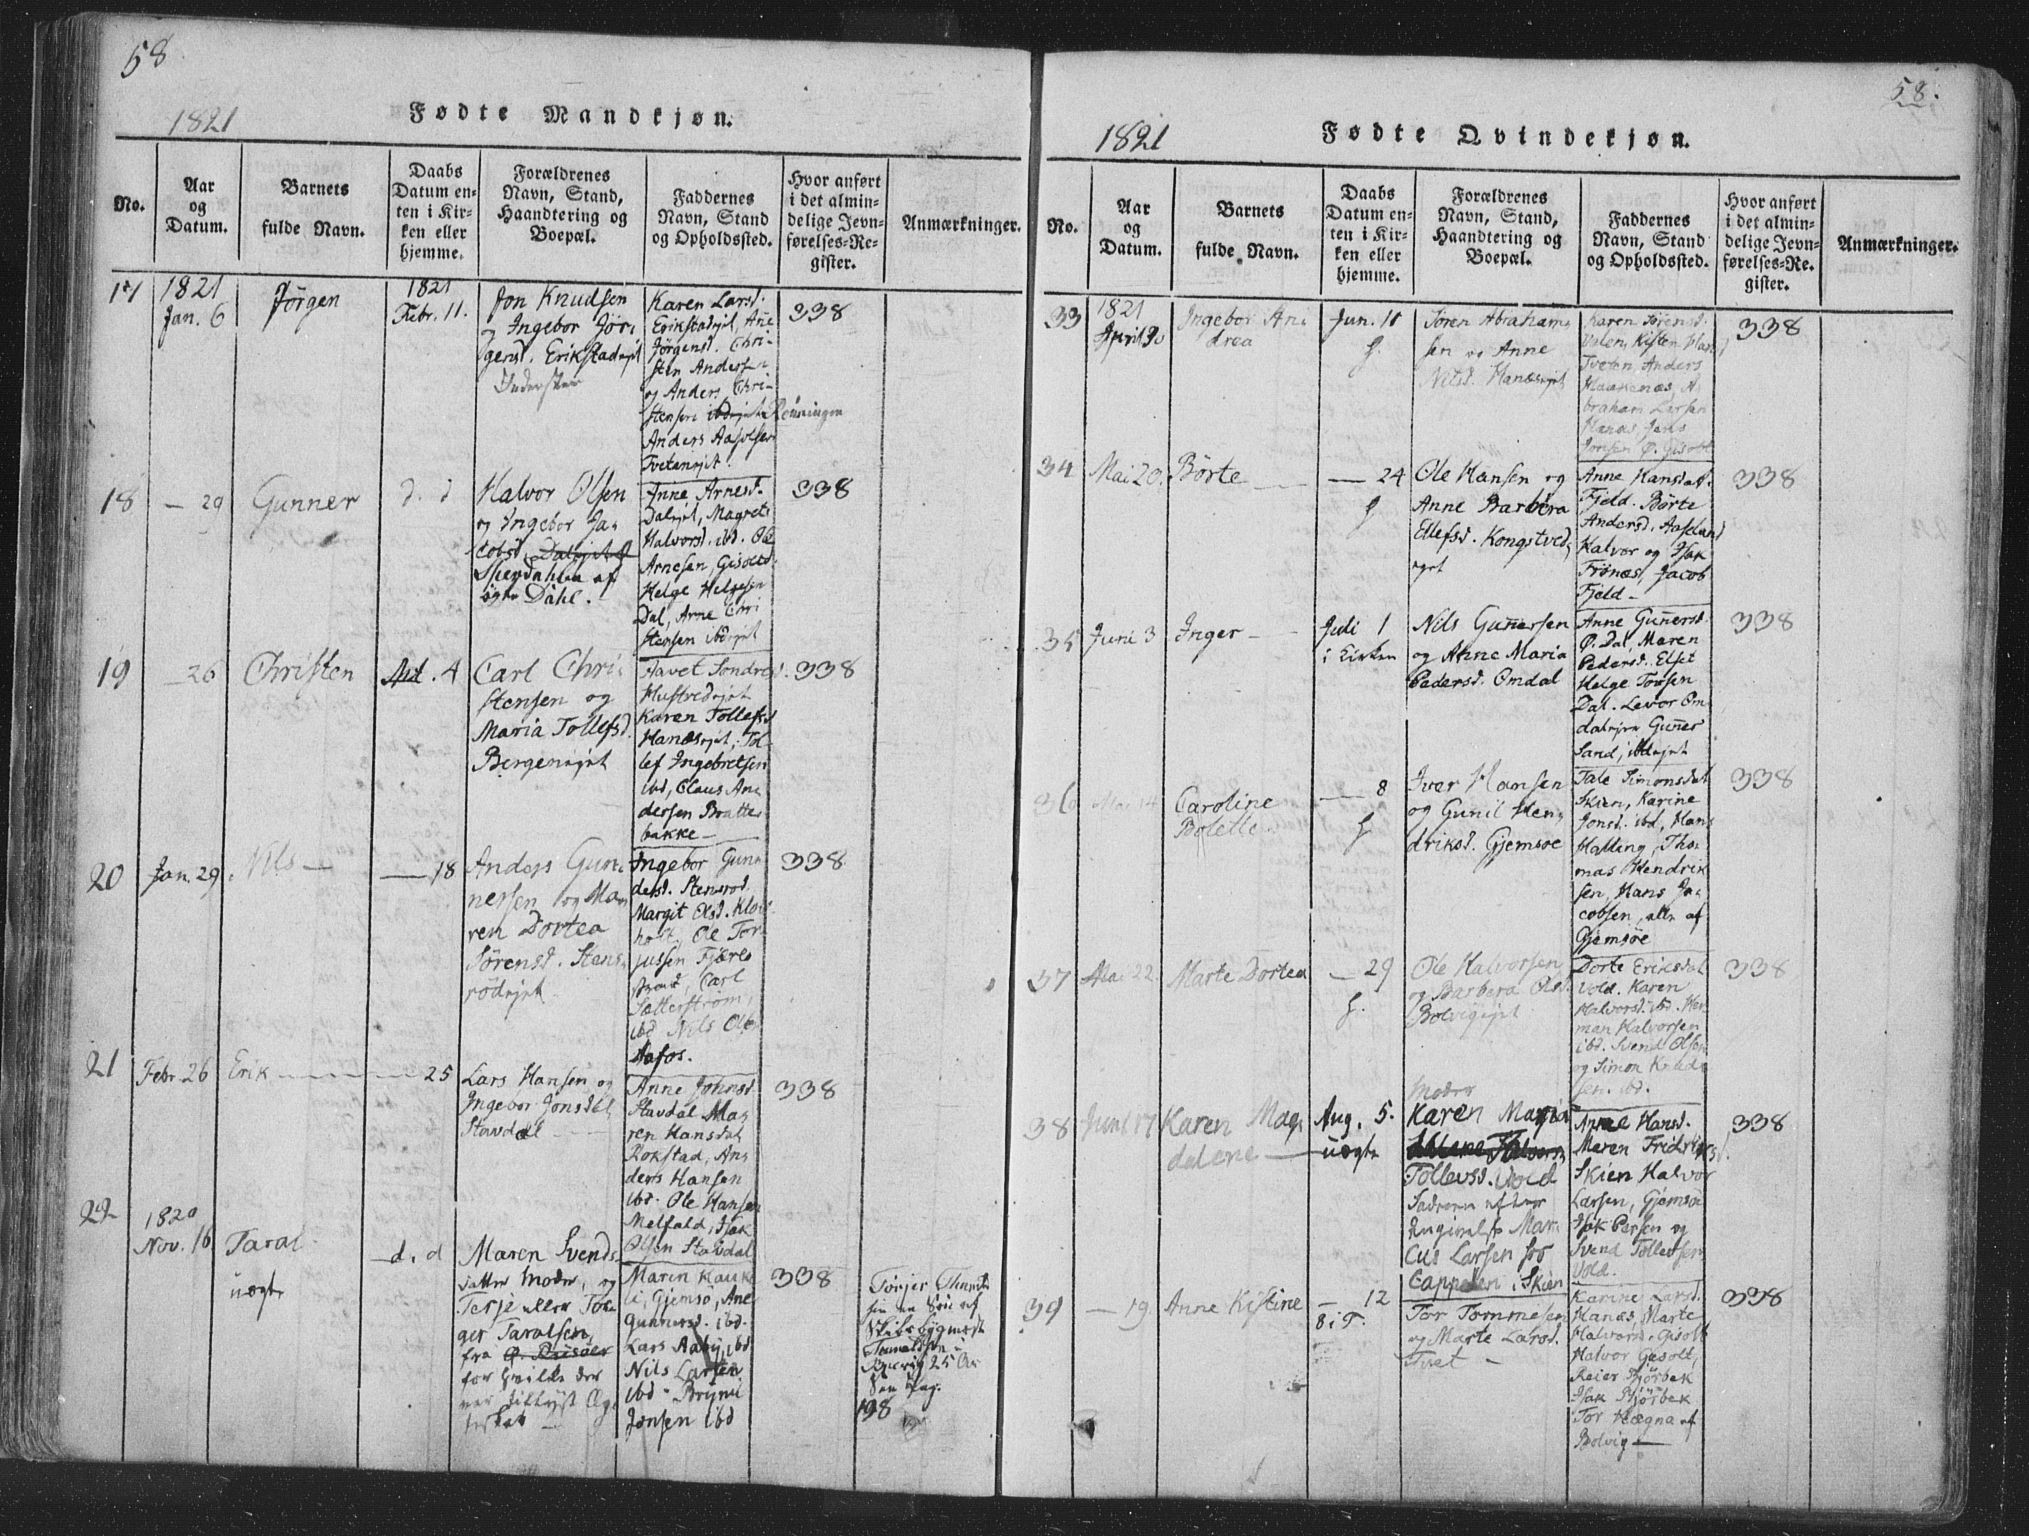 58
1821
Fødte Mandkjøn.
No.
Aar
og
Datum.
Barnets
fulde Navn.
Daabs
Datum en-
ten i Kir-
ken eller
hjemme.
Forældrenes
Navn, Stand,
Haandtering og
Boepæl.
Faddernes
Navn, Stand
og Opholdssted.
Hvor anført
i det almin-
delige Jevn-
førelses-Re-
gister.
Anmærkninger.
17
1821
Jan. 6
Jörgen
1821
Febr. 11.
Jon Knudsen
og Ingebor Jör-
gensd. Erikstadejet
Karen Larsd.
Erikstadejet, Ane
Jörgensd. Chri-
sten Andersen
og Anders Chri-
stensen ibdejet Rönningen
Anders Aasolfsen
Tvetenejet.
338
18
— 29
Gunner
d. d
Halvor Olsen
og Ingebor Ja-
cobsd.
Dahl.
Anne Arnesd.
Dalejet, Magrete
Halvorsd. ibd. Ole
Arnesen, Gisolts
Helge Helgesen
Dal, Arne Chri
stensen ibdejet
338
19
— 26
Christen
4
Carl Chri-
stensen og
Maria Tollefsd.
Bergenejet
Aavet Sondresd.
Hustvedejet
Karen Tollefsd
Hanæsejet, Tol-
lef Ingebretsen
ibd, Claus An-
dersen Bratte-
bakke —
338
20
Jan. 29
Nils —
— 18
Anders Gun-
nersen og Ma-
ren Dortea
Sörensd. Stens-
rödejet
Ingebor Gun-
dersd. Stensrod
Margit Olsd. Klov-
holt, Ole Tor-
jussen Fjære-
strand, Carl
Sætterström,
ibd Nils Olsen
Aafos.
338
21
Febr. 26
Erik
— 25
Lars Hansen og
Ingebor Jonsdat.
Stavdal
Anne Johnsd
Stavdal Ma-
ren Hansdat
Rokstad, An-
ders Hansen
ibd. Ole Hansen
Melfald, Isak
Olsen Stavdal
338
22
1820
Nov. 16
Taral
uægte
d. d
Maren Svends-
datter Moder, og
Terje eller Tor-
ger Taralsen,
fra
Maren Kauke-
li, Gjemsö, Ane
Gunnersd. ibd.
Lars Aaby, ibd
Nils Larsen
ibd - Brynil
Jonsen ibd
338
198
58.
1821
Fødte Qvindekjøn.
No.
Aar
og
Datum.
Barnets
fulde Navn.
Daabs
Datum en-
ten i Kir-
ken eller
hjemme.
Forældrenes
Navn, Stand,
Haandtering og
Boepæl.
Faddernes
Navn, Stand
og Opholdssted.
Hvor anført
i det almin-
delige Jevn-
førelses-Re-
gister.
Anmærkninger.
33
1821
April 30
Ingebor An-
drea
Jun. 11
H.
Sören Abraham-
sen og Anne
Nilsd. Hanæsejet
Karen Sörensd.
Valen, Kisten Han
Tveten, Anders
Haakenæs, A-
braham Larsen
Hanæs, Jens
Jonsen Ö. Gisolt
338
34
Mai 20.
Börte
— 24
H
Ole Hansen og
Anne Barbera
Ellefsd. Kongsted-
eget
Anne Hansdat.
Fjeld. Börte
Andersd. Aaseland
Halvor og Isak
Frönæs, Jacob
Fjeld —
338
35
Juni 3
Inger —
Juli 1
i Kirken
Nils Gunnersen
og Anne Maria
Pedersd. Omdal
Anne Gunnersd.
Ö. Dal, Maren
Pedersd. Elset
Helge Torsen
Dal. Levor Om-
dalejre Gunner
Sand, ibdejet
338
36
Mai 14
Caroline
Bolette
— 8
H
Iver Hansen
og Gunil Hen-
driksd. Gjemsöe
Tale Simonsdat
Skien, Karine
Jonsd. ibd, Hans
Halling, Tho-
mas Hendrik
sen, Hans Ja-
cobsen, alle af
Gjemsöe
338
37
Mai 22
Marte Dortea
— 29
H.
Ole Halvorsen
og Barbera Olsd
Bolvigejet
Dorte Eriksdat
Vold. Karen
Halvorsd. ibd. Her-
man Halvorsen
ibd. Svend Olsen
og Simon Knud-
sen. ibd.
338
38
Juni 17
Karen Mag-
dalene —
Aug. 5.
uægte
Moder
Karen Maria
Tollevsd. Vold
Mar-
cus Larsen hos
Cappelen i Skien
Anne Hansd.
Maren Fridriksd.
Skien Halvor
Larsen, Gjemsöe
Isak Persen og
Svend Tollevsen
Vold.
338
39
— 19
Anne Kistine
— 12
8 i T.
Tor Tommesen
og Marte Larsd.
Tvet —
Karine Larsd.
Hanæs, Marte
Halvorsd. Gisolt
Halvor Gisolt,
Reier Björbek
Isak Björbek
Tor Hægna af
Bolvig —
338